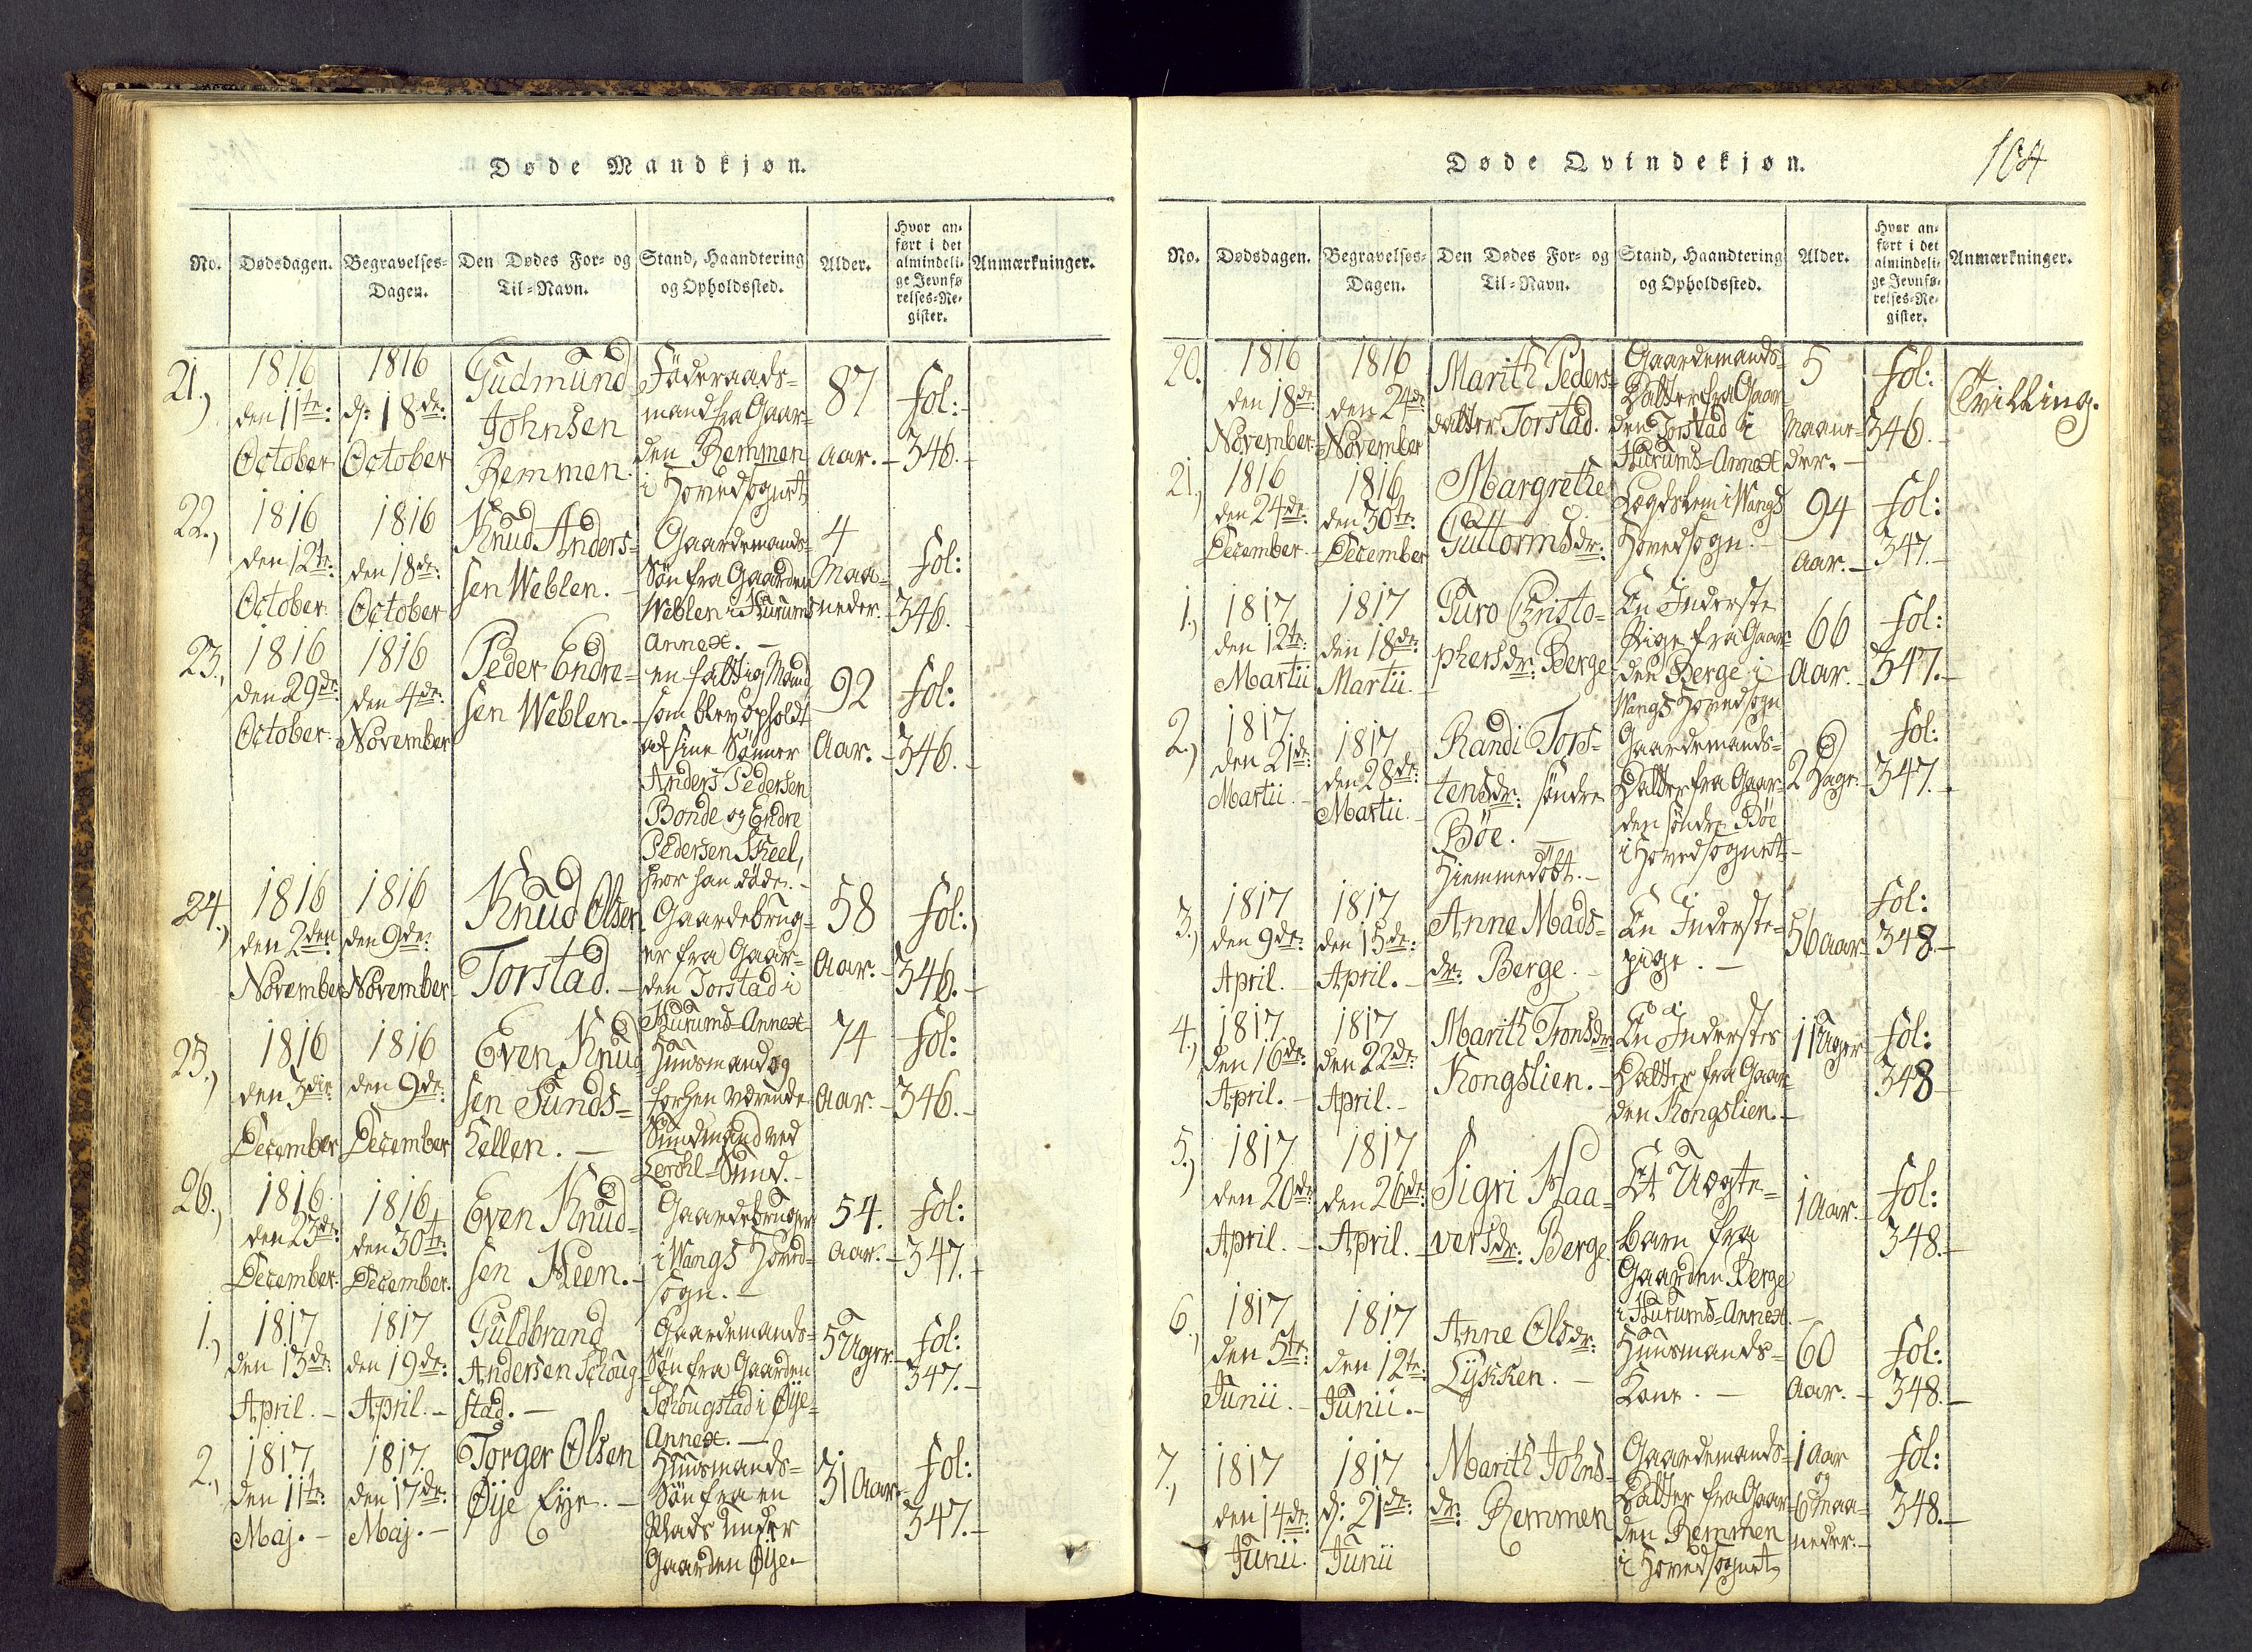 Døde Mandkjøn.
No.
Dødsdagen.
Begravelses-
Dagen.
Den Dødes For- og
Til-Navn.
Stand, Haandtering
og Opholdssted.
Alder.
Hvor an-
ført i det
almindeli-
ge Jevnfø-
relses-Re-
gister.
Anmærkninger.
21.,
1816
den 11te:
October
1816
d: 18de:
October
Gudmund
Johnsen
Remmen.
Föderaads-
mand fra Gaar-
den Remmen
i Hovedsognet
87
Aar. -
Fol:
346. -
22.,
1816
den 12te:
October.
1816
den 18de:
October
Knud Anders-
sen Weblen. -
Gaardemands-
Søn fra Gaarden
Weblen i Hurums
Annex. -
4
Maa-
neder. -
Fol:
346. -
23.,
1816
den 29de:
October.
1816
den 4de:
November
Peder Endre-
sen Weblen. -
en fattig Mand
som blev opholdt
af sine Sønner
Anders Pedersen
Bonde og Endre
Pedersen Skeel,
hvor han døde. -
92
Aar. -
Fol:
346. -
24.,
1816
den 2den
November
1816
den 9de:
November
Knud Olsen
Torstad. -
Gaardebrug-
er fra Gaar-
den Torstad i
Hurums-Annex
58
Aar. -
Fol:
346. -
25.,
1816
den 3die
December
1816
den 9de:
December
Even Knud-
sen Sunds-
hellen. -
Huusmand og
forhen værende
Sundmand ved
Lerohl-Sund. -
74
Aar. -
Fol:
346. -
26.,
1816
den 23de:
December.
1816
den 30te:
December.
Even Knud-
sen Keen. -
Gaardebruger
i Wangs Hoved-
sogn. -
54.
Aar. -
Fol:
347. -
1.,
1817
den 13de:
April. -
1817
den 19de:
April. -
Guldbrand
Andersen Schoug-
stad. -
Gaardemands-
Søn fra Gaarden
Schougstad i Øye-
Annex. -
5 Uger. -
Fol:
347. -
2.,
1817
den 11te:
Maj. -
1817.
den 17de:
Maj. -
Torger Olsen
Øye Eye. -
Huusmands-
Søn fra en
Plads under
Gaarden Øye. -
31 Aar. -
Fol:
347. -
Døde Qvindekjøn.
164
No.
Dødsdagen.
Begravelses-
Dagen.
Den Dødes For- og
Til-Navn.
Stand, Haandtering
og Opholdssted.
Alder.
Hvor an-
ført i det
almindeli-
ge Jevnfø-
relses-Re-
gister.
Anmærkninger.
20.
1816
den 18de:
November.
1816
den 24de:
November
Marith Peders-
datter Torstad.
Gaardemands-
Datter fra Gaar-
den Torstad i
Hurums-Annex
5
Maane-
der. -
Fol:
346. -
Tvilling.
21.,
1816
den 24de:
December. -
1816
den 30te:
December
Margrethe
Guttormsdr:
Lægdslem i Wangs
Hovedsogn. -
94
Aar. -
Fol:
347. -
1.,
1817
den 12te:
Martii
1817
den 18de:
Martii. -
Guro Christo-
phersdr: Berge
En Inderste
Pige fra Gaar-
den Berge i
Wangs Hovedsogn
66
Aar. -
Fol:
347. -
2.,
1817.
den 21de:
Martii. -
1817
den 28de:
Martii. -
Randi Tors-
tensdr: søndre
Böe. -
Hiemmedøbt. -
Gaardemands-
Datter fra Gaar-
den søndre Böe
i Hovedsognet. -
2 Dage.
Fol:
347. -
3.,
1817
den 9de:
April. -
1817
den 15de:
April. -
Anne Mads-
dr: Berge. -
En Inderste-
pige. -
56 Aar. -
Fol:
348. -
4.,
1817
den 16de:
April. -
1817
den 22de:
April. -
Marith Tronsdr:
Kongslien. -
En Inderstes
Datter fra Gaar-
den Kongslien. -
11 Uger
Fol:
348
5.,
1817
den 20de:
April. -
1817
den 26de:
April. -
Sigri Haa-
versdr: Berge.
Et Uægte-
barn fra
Gaarden Berge
i Hurums-Annex. -
1 Aar. -
Fol:
348. -
6.,
1817
den 5te:
Junii. -
1817
den 12te:
Junii. -
Anne Olsdr:
Lykken. -
Huusmands-
Kone. -
60
Aar. -
Fol:
348. -
7.,
1817
den 14de:
Junii.
1817
d: 21de:
Junii
Marith Johns-
dr: Remmen
Gaardemands-
Datter fra Gaar-
den Remmen
i Hovedsognet
1 Aar
og
6 Maa-
neder. -
Fol:
348. -